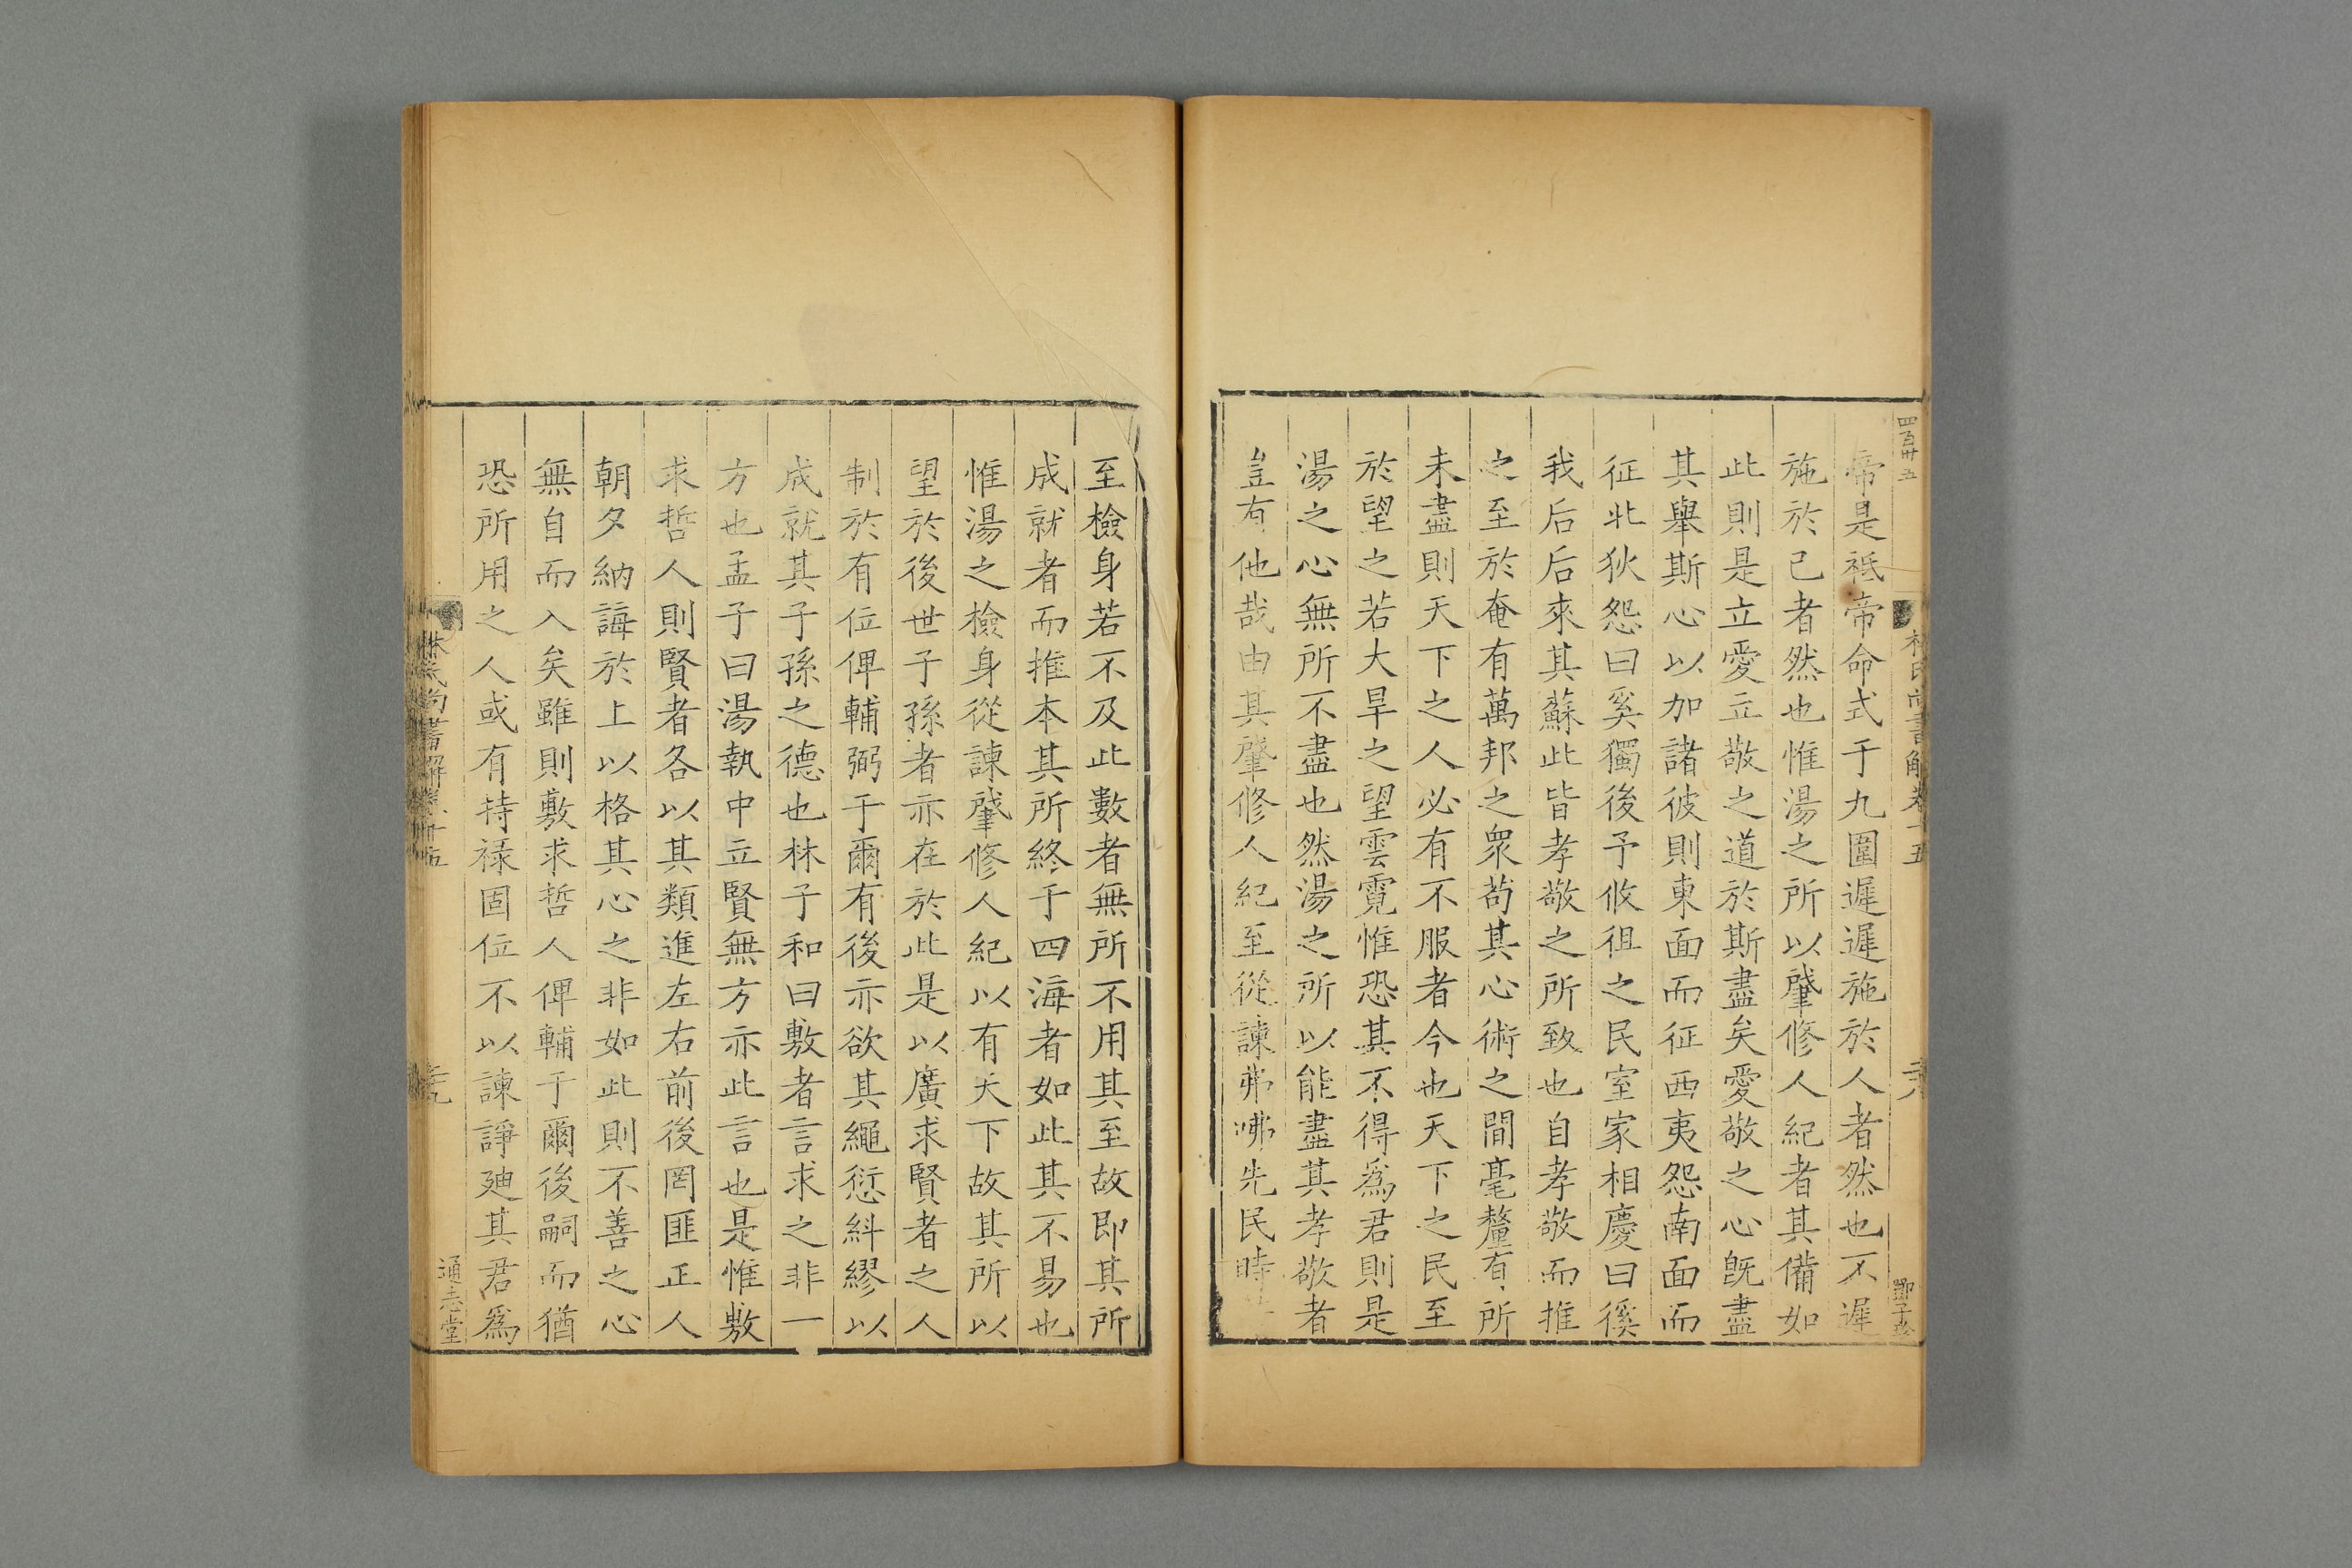 四百卅五
林氏尚書解卷十五
帝是祗帝命式于九圍遲遲施於人者然也不遲
施於己者然也惟湯之所以肇修人紀者其備如
此則是立愛立敬之道於斯盡矣愛敬之心旣盡
其舉斯心以加諸彼則東面而征西夷怨南面而
征北狄怨曰奚獨後予攸徂之民室家相慶曰徯
我后后來其蘇此皆孝敬之所致也自孝敬而推
之至於奄有萬邦之衆苟其心術之間毫釐有所
未盡則天下之人必有不服者今也天下之民至
於望之若大旱之望雲霓惟恐其不得爲君則是
湯之心無所不盡也然湯之所以能盡其孝敬者
豈有他哉由其肇修人紀至從諫弗咈先民時
至檢身若不及此數者無所不用其至故即其所
成就者而推本其所終于四海者如此其不易也
惟湯之檢身從諫肇修人紀以有天下故其所以
望於後世子孫者亦在於此是以廣求賢者之人
制於有位俾輔弼于爾有後亦欲其繩愆糾繆以
成就其子孫之德也林子和曰敷者言求之非一
方也孟子曰湯執中立賢無方亦此言也是惟敷
求哲人則賢者各以其類進左右前後罔匪正人
朝夕納誨於上以格其心之非如此則不善之心
無自而入矣雖則敷求哲人俾輔于爾後嗣而猶
恐所用之人或有持祿固位不以諫諍廸其君爲
林氏尚書解卷十五
通志堂